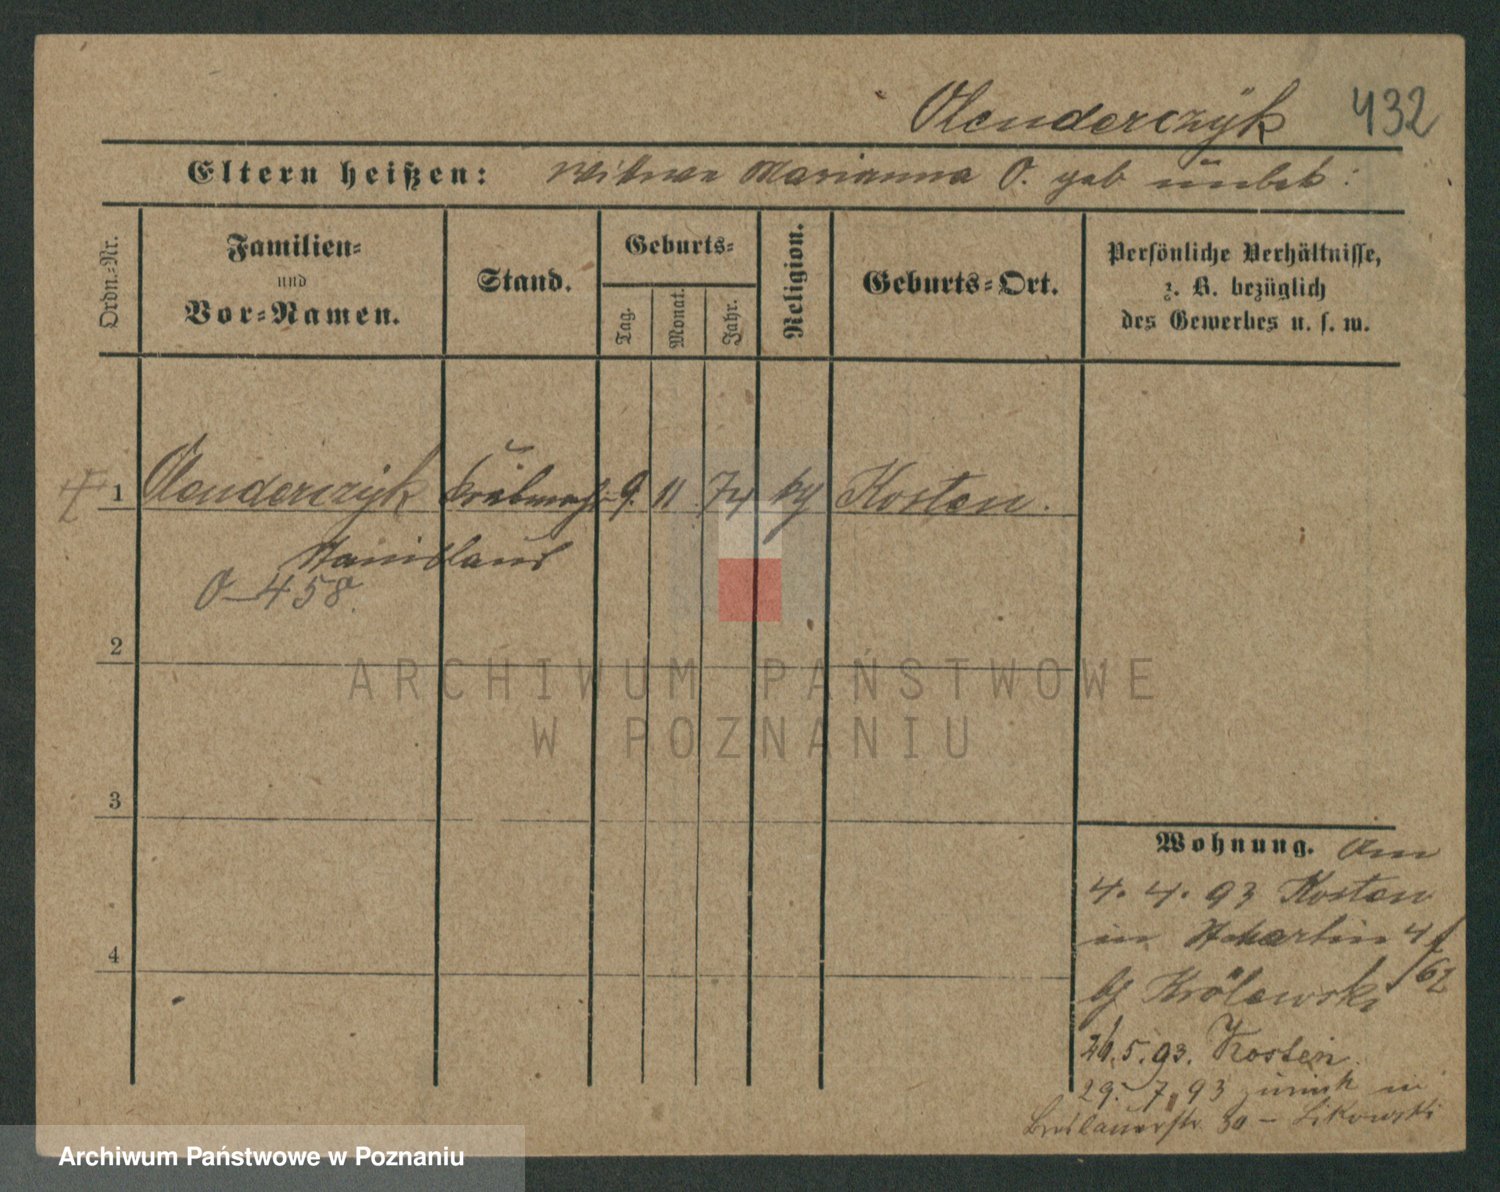 Olenderczÿk 432
Eltern heißen: Witwe Marianna O. geb unbek:
Ordn.-Nr.
Familien-
und
Vor-Namen.
Stand.
Geburts-
Tag.
Monat.
Jahr.
Religion.
Geburts-Ort.
Persönliche Verhältnisse,
z. B. bezüglich
des Gewerbes u. s. w.
1 Olenderczÿk 9. 11 74 Kosten.
Stanislaus
O-458.
2
3
4
Wohnung. Am
4. 4. 93 Kosten
in St Martin 4
62
bj Królewski
26.5.93. Kosten.
29. 7. 93 zurück in
Breslauerstr. 30 - Likowski
ARCHIWUM PAŃSTWOWE
W POZNANIU
Archiwum Państwowe w Poznaniu